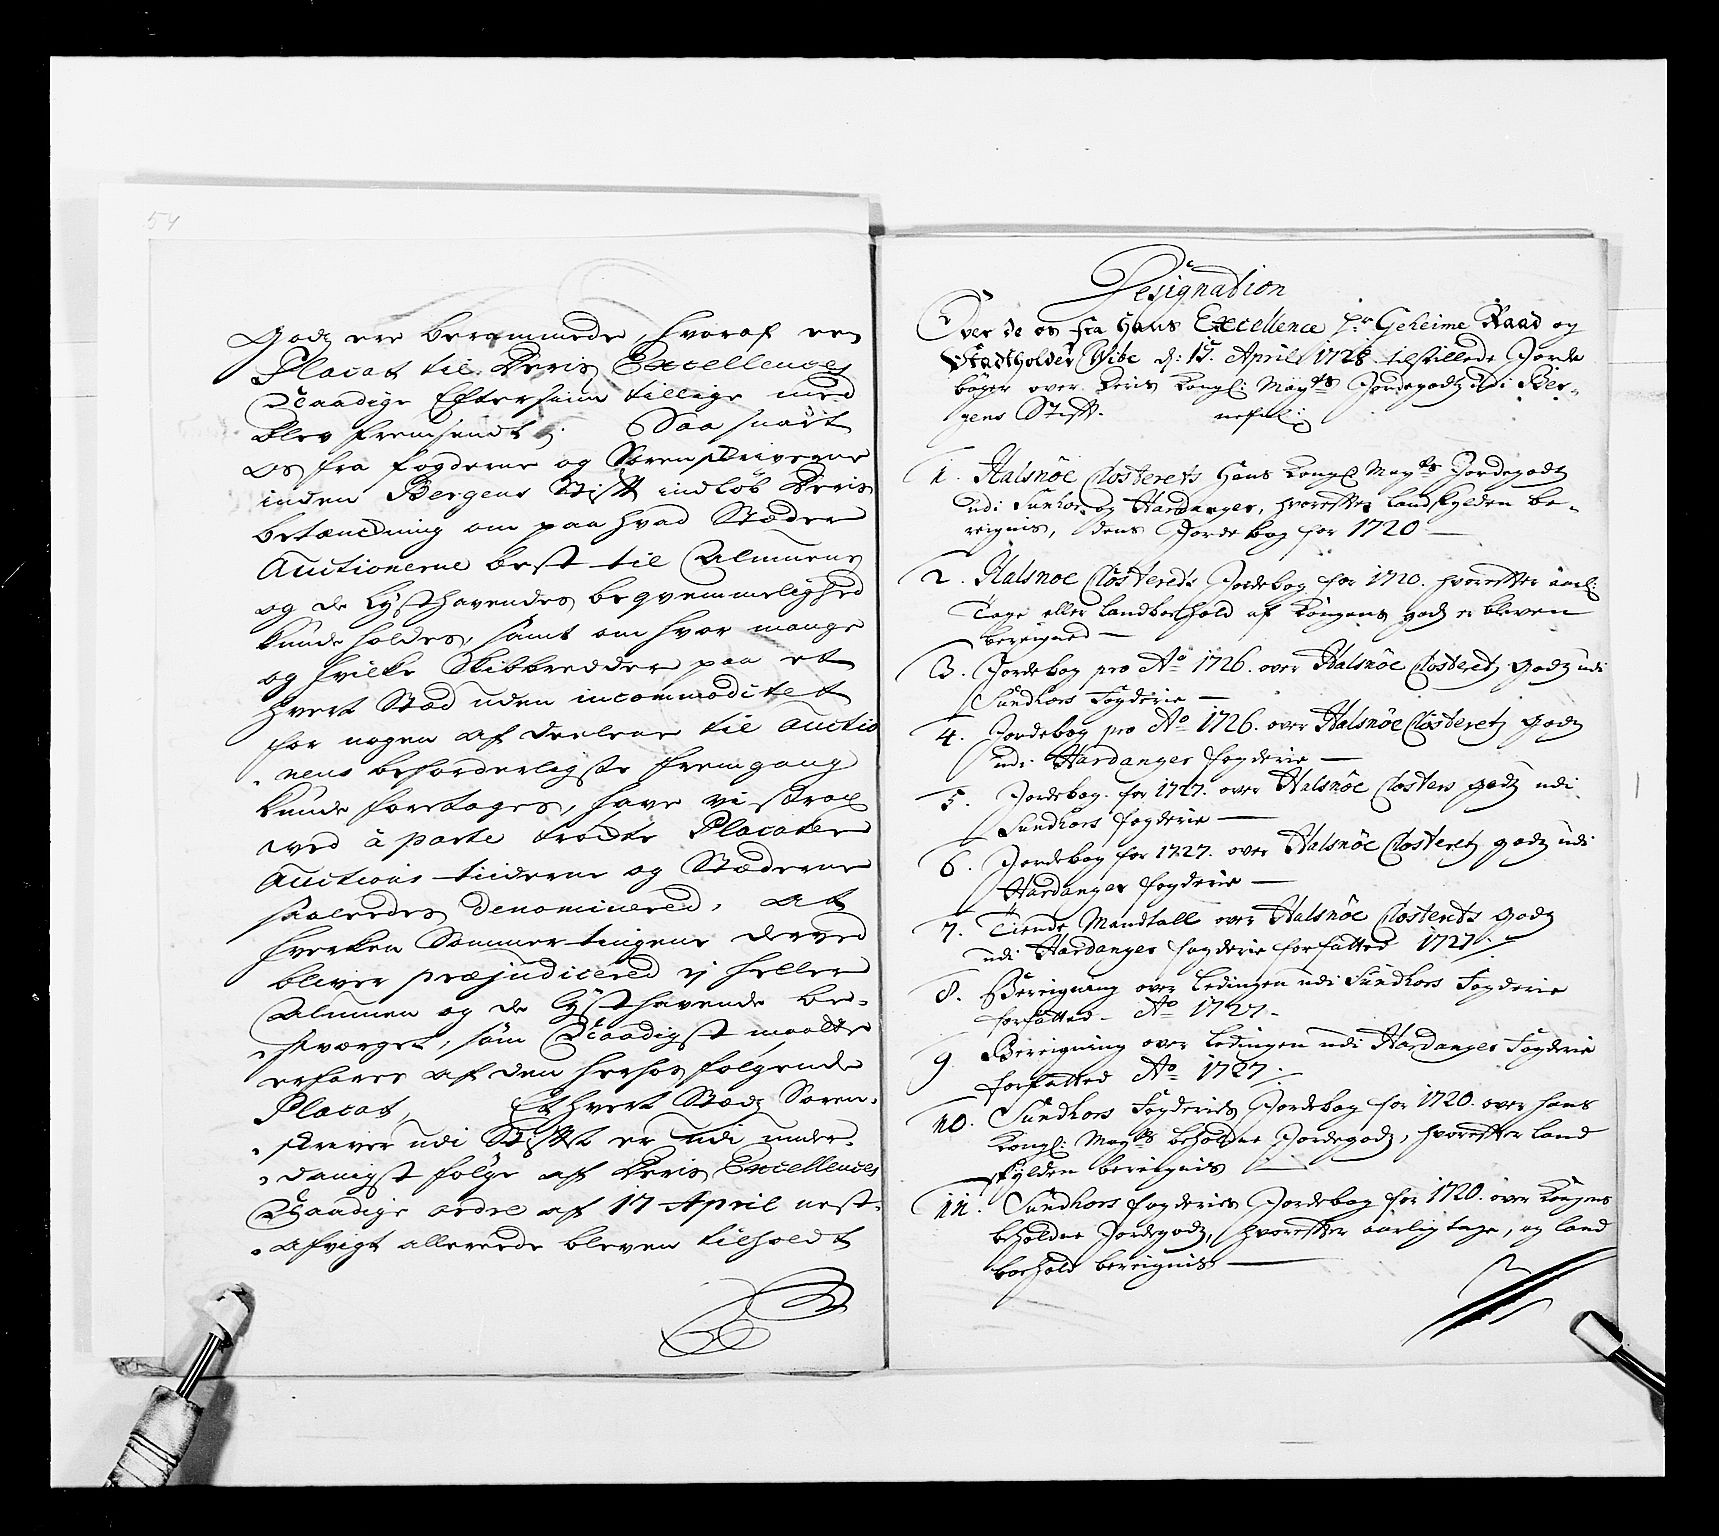 54
Godz ere berammede, hvoraf een
Placat til Deris Excellences
Naadige Eftersiun tillige med
blev fremsendt; Saa snart
os fra fogderne og Sorenskriverne
inden Bergens Stift indløb Deris
betænckning om paa hvad Stæder
Auctionerne best til Almuens
og de Lysthavendes beqvemmelighed
kunde holdes, samt om hvor mange
og hvilke Skibbreder paa et
hvert Stæd uden incommoditet
for nogen af deelene til Auctio
nens beforderligste fremgang
kunde foretages, have vi strax
ved à parte trøckte Placater
Auctions tiiderne og Stæderne
saaleedes denominered, at
hverken Sommertingene derved
bliver præjudicered ej heller
Almuen og de Lysthavende be-
sværget, som Naadigst maatte
erfares af den herhos følgende
Placat, Ethvert Stædz Soren-
skriver udi Stiftet er udi under-
danigst følge af Deris Excellences
Naadige ordre af 17 April nest-
afvigt allereede bleven tilholdt
Designation
Over de os fra Hans Excellence Hr Geheime Raad og
Stadtholder Vibe d: 15. April 1728 tilstillede Jorde
bøger over Deris Kongl: Mayts Jordegodz udi Ber-
gens Stift. nefnl:
1. Halsnöe Closterets Hans Kongl Mayts Jordegodz
udi Sunhor. og Hardanger, hvorefter landskylden be-
reignis, dens Jordebog for 1720
2. Halsnöe Closterets Jordebog for 1720. hvorefter aarl:
Tage eller landboehold af Kongens godz er bleven
bereigned
3. Jordebog pro Ao 1726. over Halsnöe Closteretz godz udi
Sundhors Fogderie
4. Jordebog pro Ao 1726. over Halsnöe Closteretz godz
udi Hardanger fogderie
5. Jordebog. for 1727. over Halsnöe Closters godz udi
Sundhors fogderie
6. Jordebog for 1727. over Halsnöe Closteretz godz udi
Hardanger fogderie
7. Tiende Mandtall over Halsnöe Closterets godz
udi Hardanger fogderie forfatted 1727.
8. Bereigning over Ledingen udi Sundhors Fogderie
forfatted Ao 1727.
9. Bereigning over Ledingen udi Hardanger Fogderie
forfatted Ao 1727.
10. Sundhors Fogderies Jordebog for 1720. over Hans
Kongl: Mayts beholdne Jordegodz, hvorefter land
skylden bereignis
11. Sundhors fogderies Jordebog for 1720. over Kongens
beholdne Jordegodz, hvorefter aarlig tage, og land
boehold bereignis